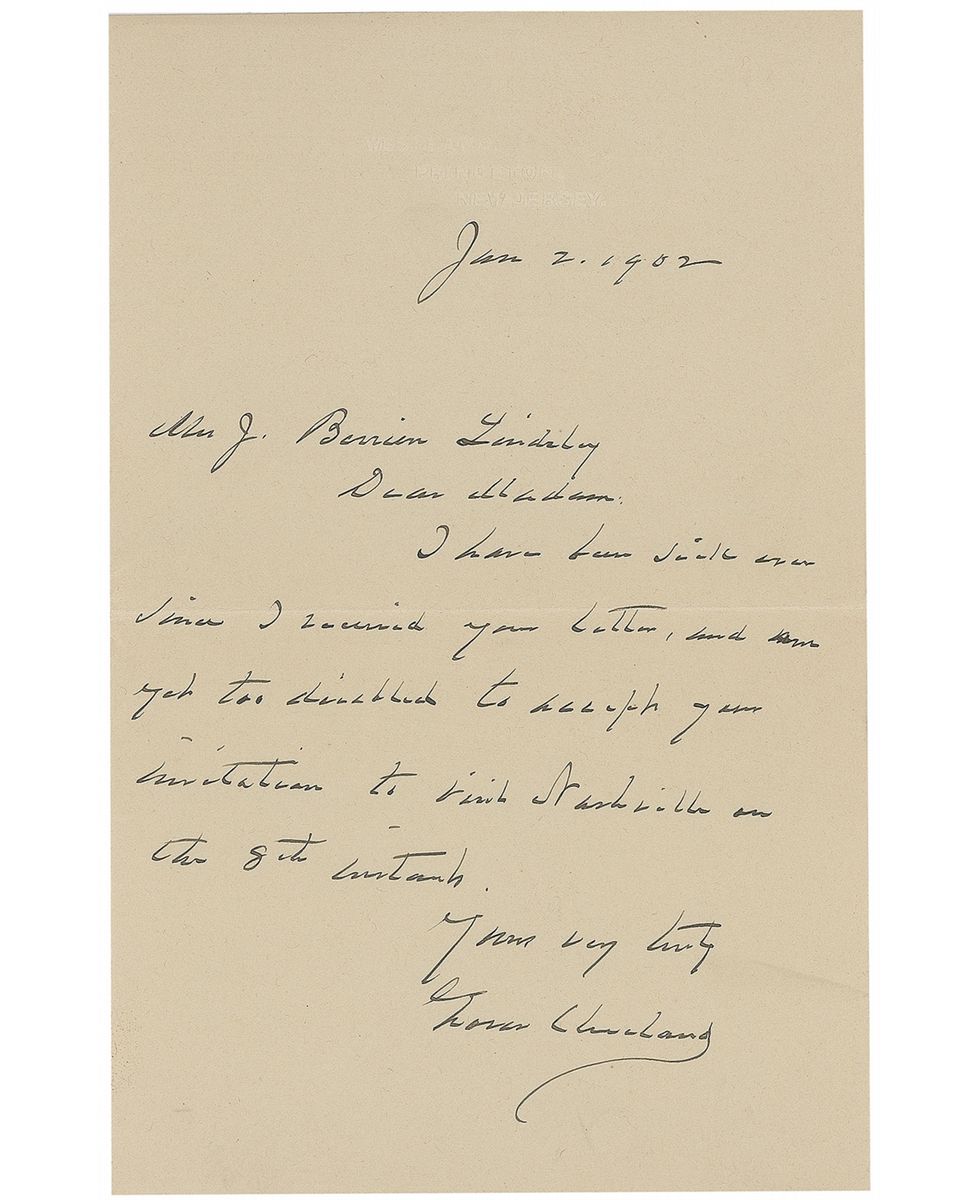 WESTLAND
PRINCETON,
NEW JERSEY.
Jan 2. 1902
Mrs J. Berrien Lindsley
Dear Madam:
I have been sick ever
since I received your letter, and am
yet too disabled to accept your
invitation to visit Nashville on
the 8th instant.
Yours very truly
Grover Cleveland